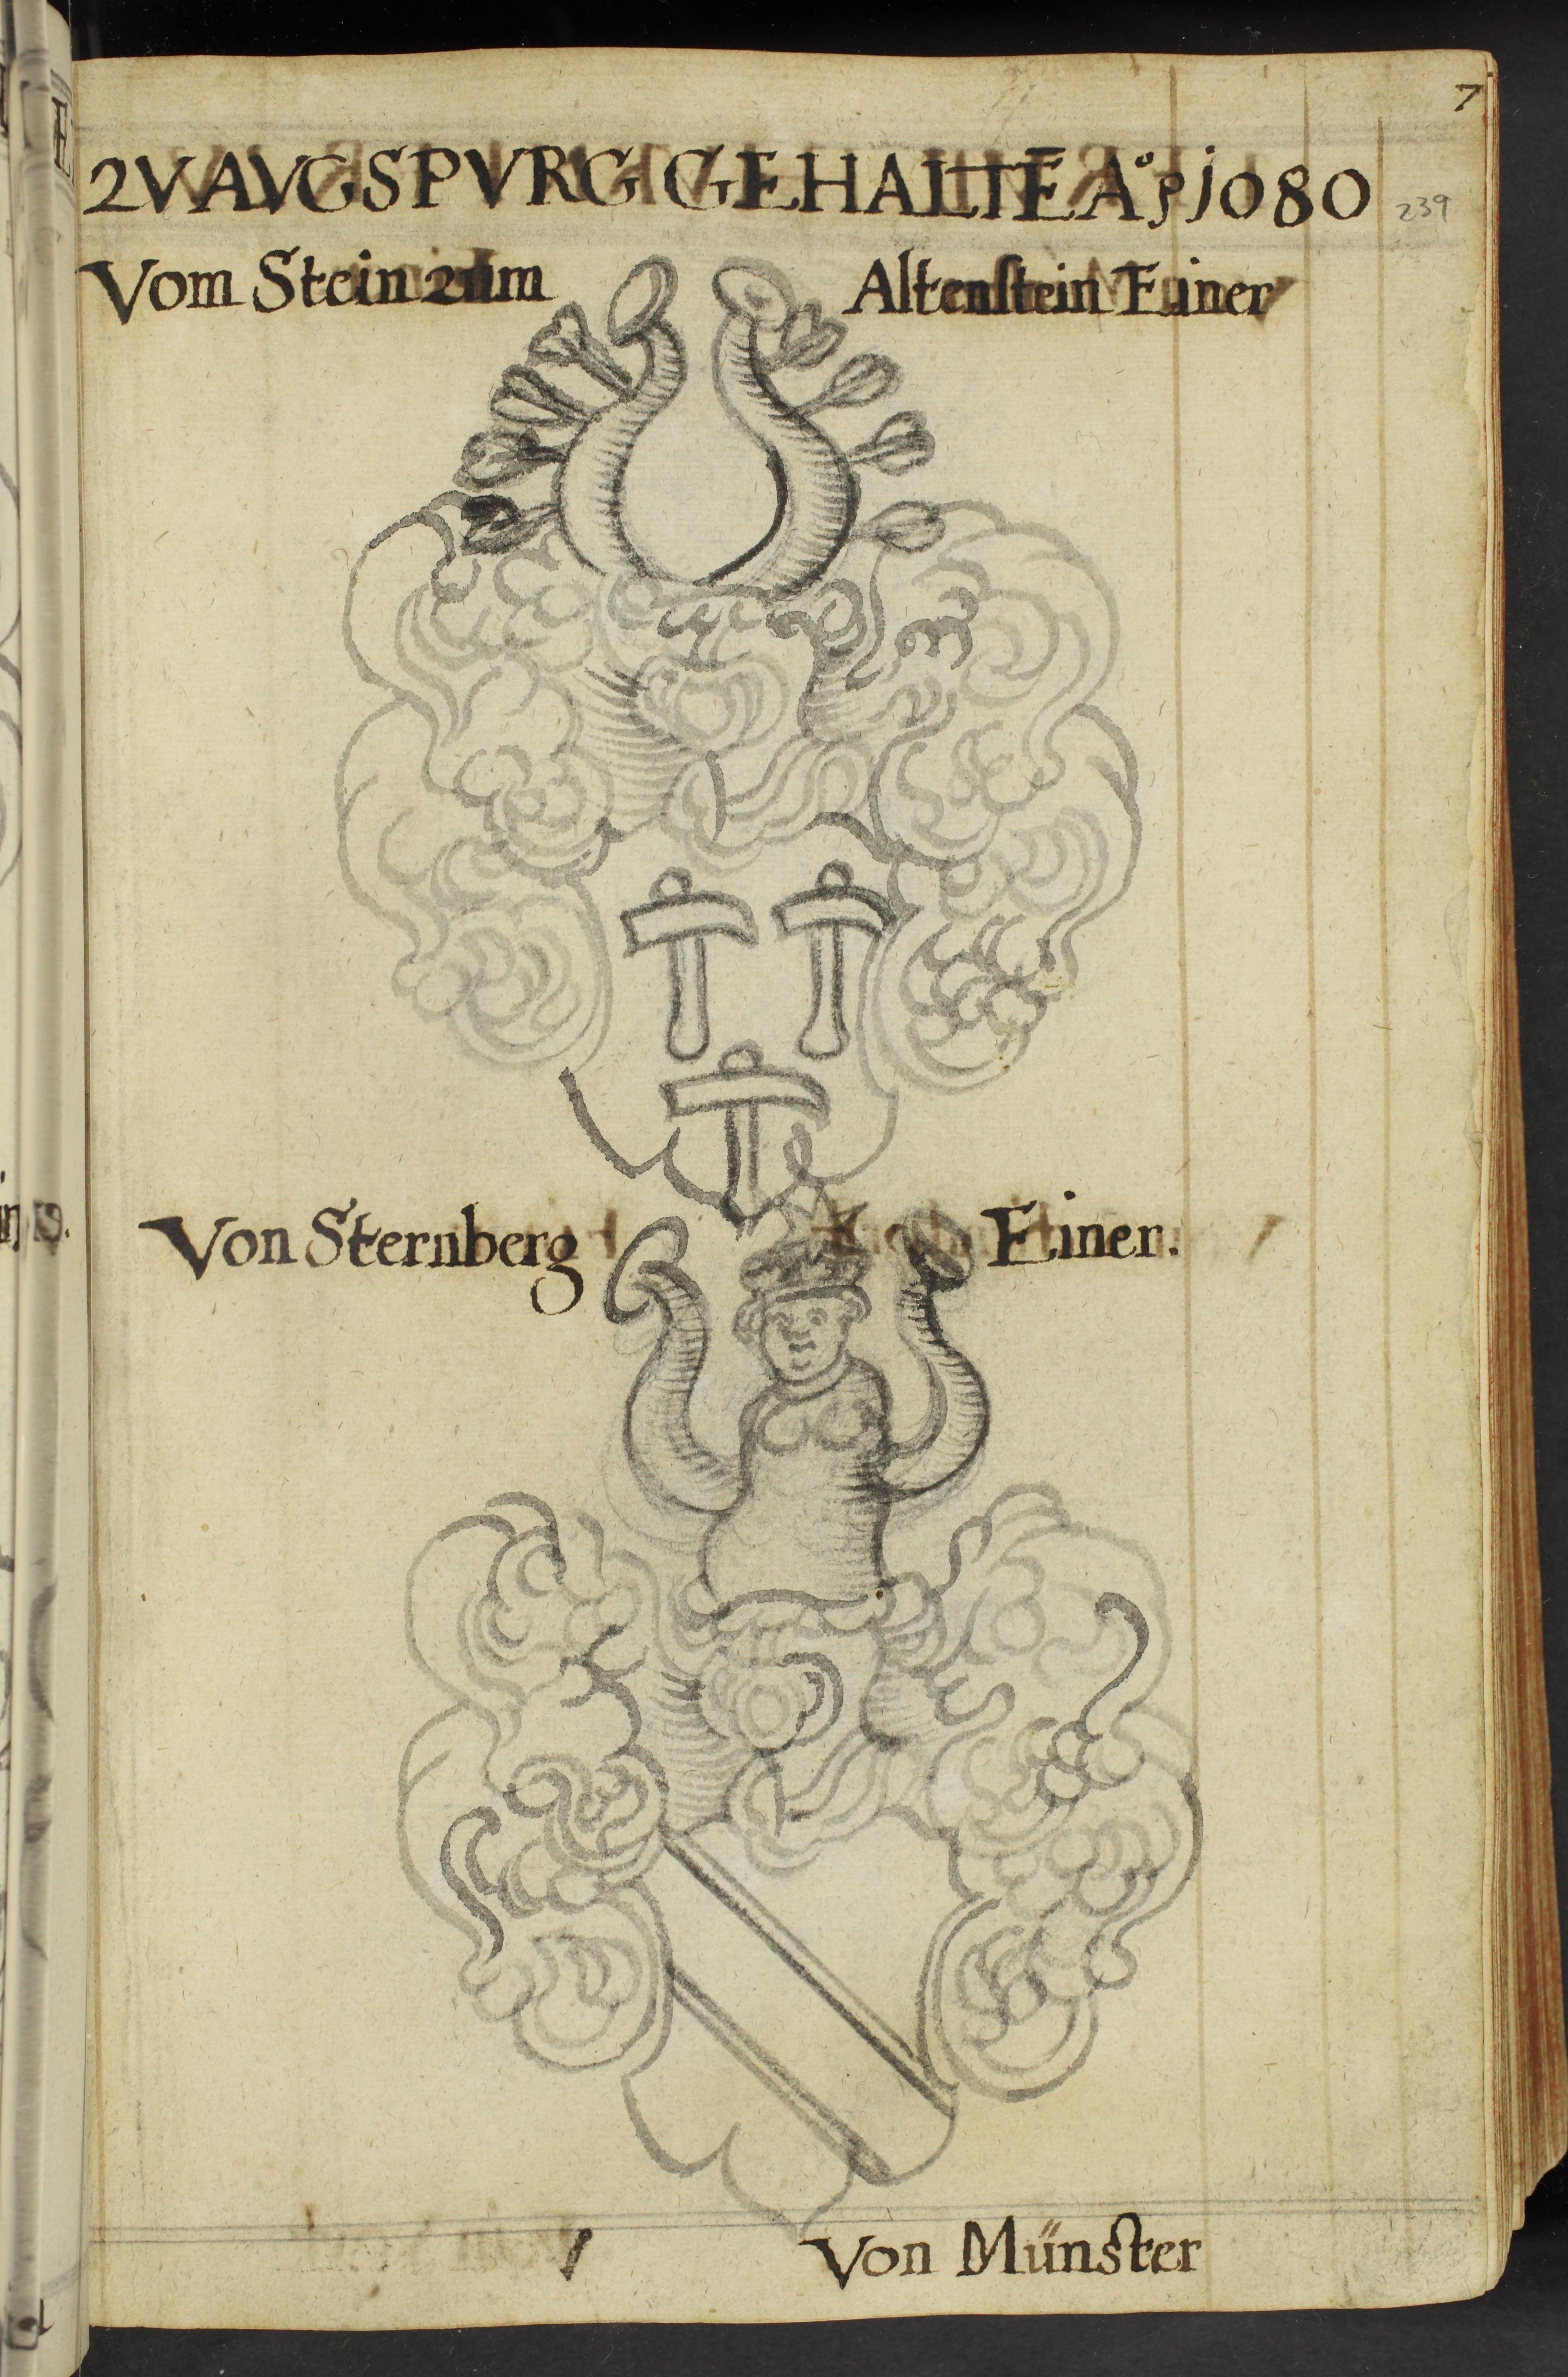 7
ZV AVGSPVRG GEHALTĒ Aº 1080
239
Vom Stein zum Altenstein Einer
Von Sternberg Einer.
Von Münster